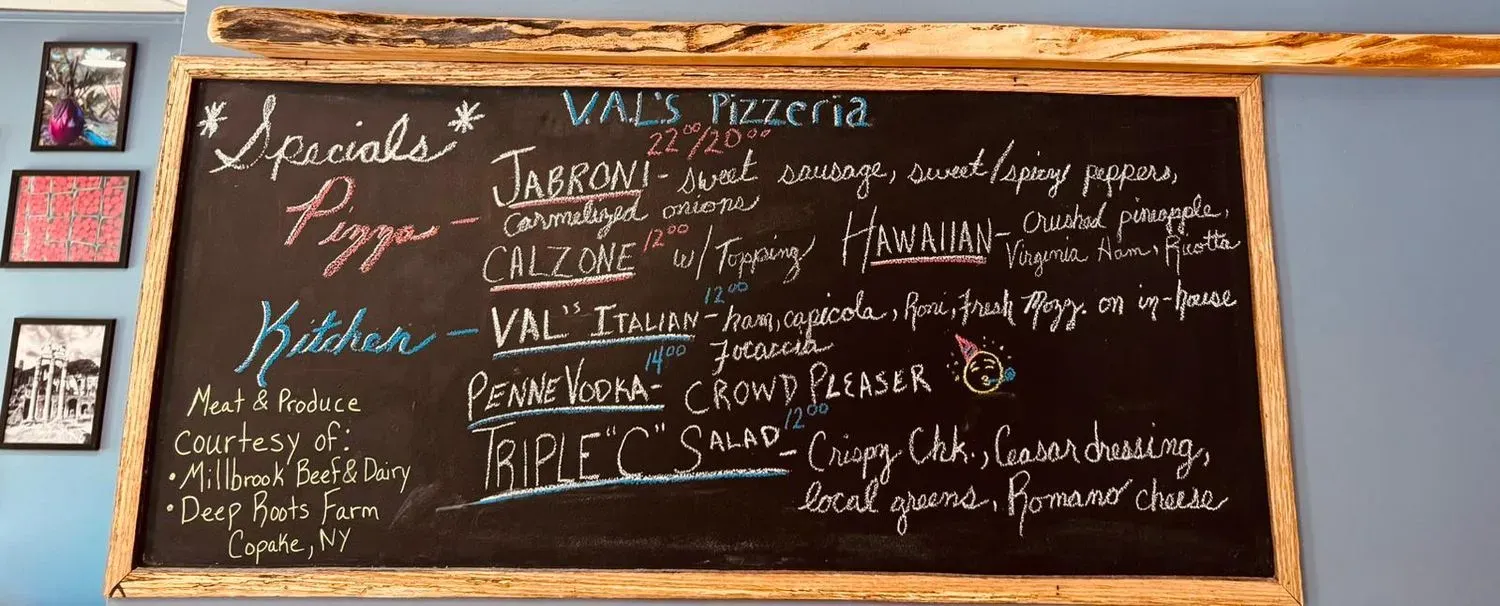 *Specials*
V.A.L.'S Pizzeria
22⁰⁰/20⁰⁰
Pizza - JABRONI - sweet sausage, sweet/spicy peppers,
carmelized onions
CALZONE 12⁰⁰ w/ Topping
HAWAIIAN - crushed pineapple,
Virginia Ham, Ricotta
12⁰⁰
Kitchen - VAL'S ITALIAN - ham, capicola, Roni, Fresh Mozz. on in-house
Focaccia
14⁰⁰
PENNE VODKA - CROWD PLEASER
12⁰⁰
TRIPLE "C" SALAD - Crispy Chk., Ceasar dressing,
local greens, Romano cheese
Meat & Produce
courtesy of:
• Millbrook Beef & Dairy
• Deep Roots Farm
Copake, NY